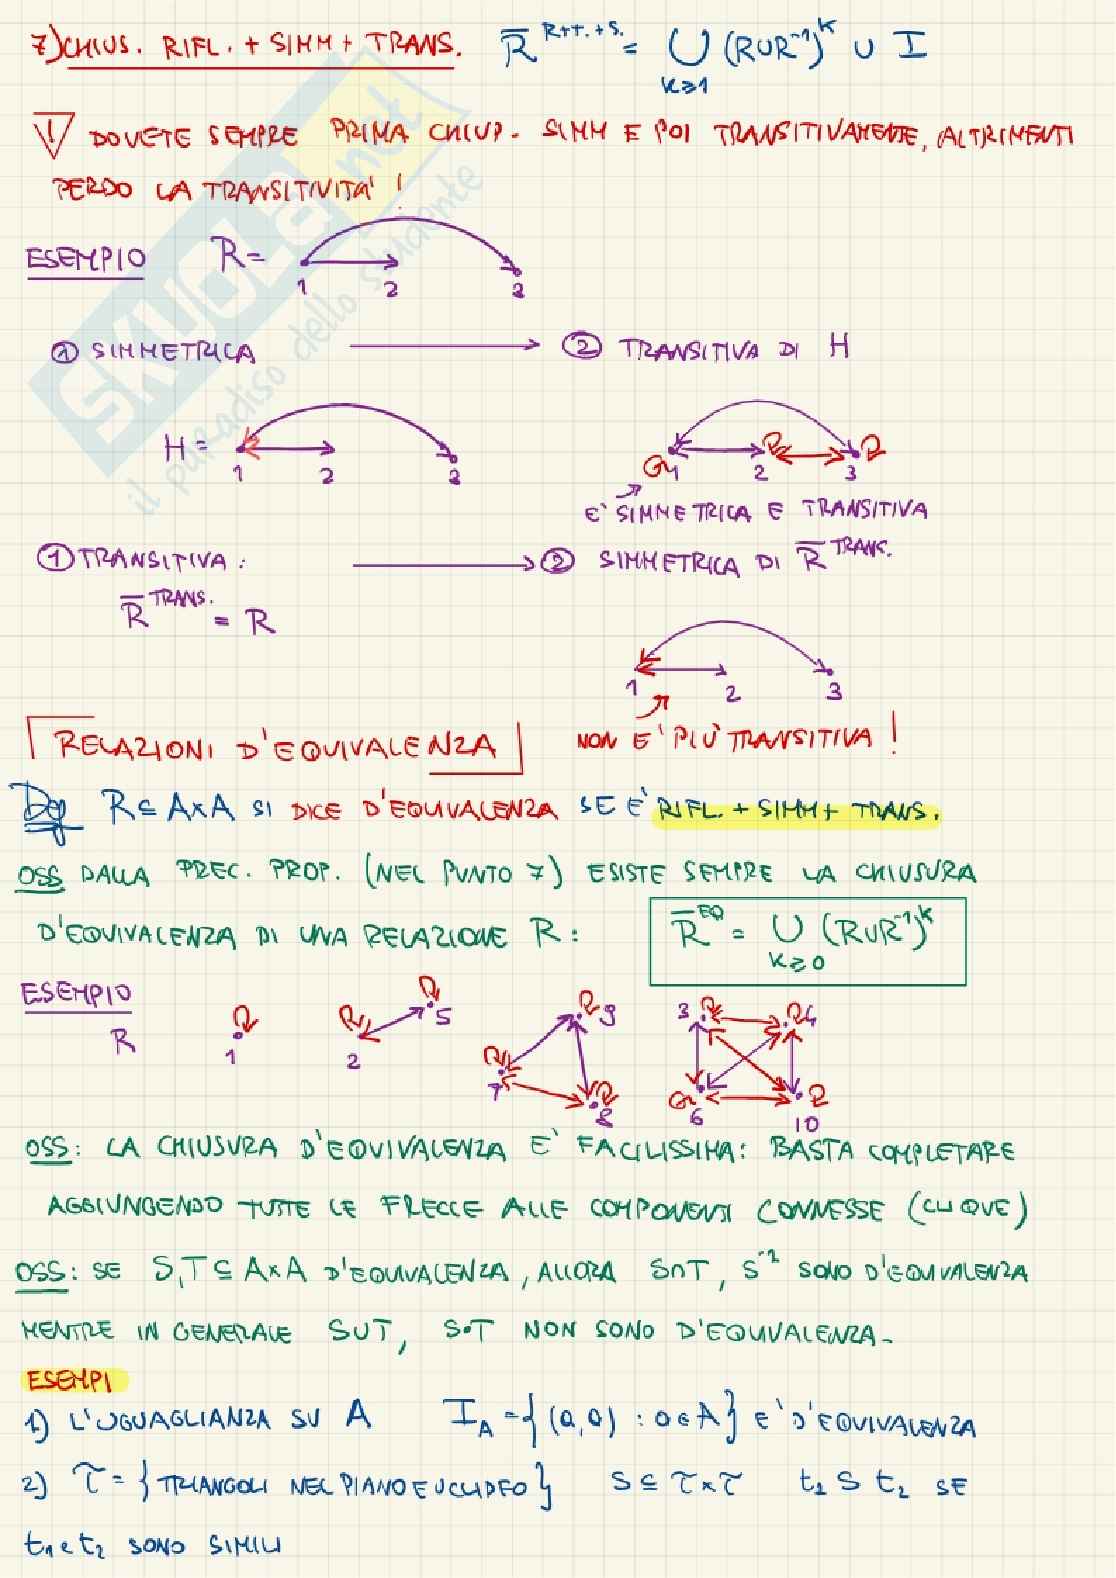 7) CHIUS. RIFL. + SIMM + TRANS. R̅ ^R+T.+S. = ⋃_{K≥1} (R∪R⁻¹)^K ∪ I
! DOVETE SEMPRE PRIMA CHIUD. SIMM E POI TRANSITIVAMENTE, ALTRIMENTI
PERDO LA TRANSITIVITA' !
ESEMPIO R =
1 2 3
① SIMMETRICA → ② TRANSITIVA DI H
H =
1 2 3
1 2 3
E' SIMMETRICA E TRANSITIVA
① TRANSITIVA: → ② SIMMETRICA DI R̅ ^TRANS.
R̅ ^TRANS. = R
1 2 3
NON E' PIU' TRANSITIVA !
RELAZIONI D'EQUIVALENZA
Def R ⊆ A×A SI DICE D'EQUIVALENZA SE E' RIFL. + SIMM + TRANS.
OSS DALLA PREC. PROP. (NEL PUNTO 7) ESISTE SEMPRE LA CHIUSURA
D'EQUIVALENZA DI UNA RELAZIONE R: R̅ ^EQ = ⋃_{K≥0} (R∪R⁻¹)^K
ESEMPIO
R
1 2 5 7 9 8 3 4 6 10
OSS: LA CHIUSURA D'EQUIVALENZA E' FACILISSIMA: BASTA COMPLETARE
AGGIUNGENDO TUTTE LE FRECCE ALLE COMPONENTI CONNESSE (CLIQUE)
OSS: SE S,T ⊆ A×A D'EQUIVALENZA, ALLORA S∩T, S⁻¹ SONO D'EQUIVALENZA
MENTRE IN GENERALE S∪T, S•T NON SONO D'EQUIVALENZA.
ESEMPI
1) L'UGUAGLIANZA SU A I_A = {(a,a) : a∈A} E' D'EQUIVALENZA
2) τ = {TRIANGOLI NEL PIANO EUCLIDEO} S ⊆ τ×τ t₁ S t₂ SE
t₁ e t₂ SONO SIMILI
SKUOLA.net
il paradiso dello studente